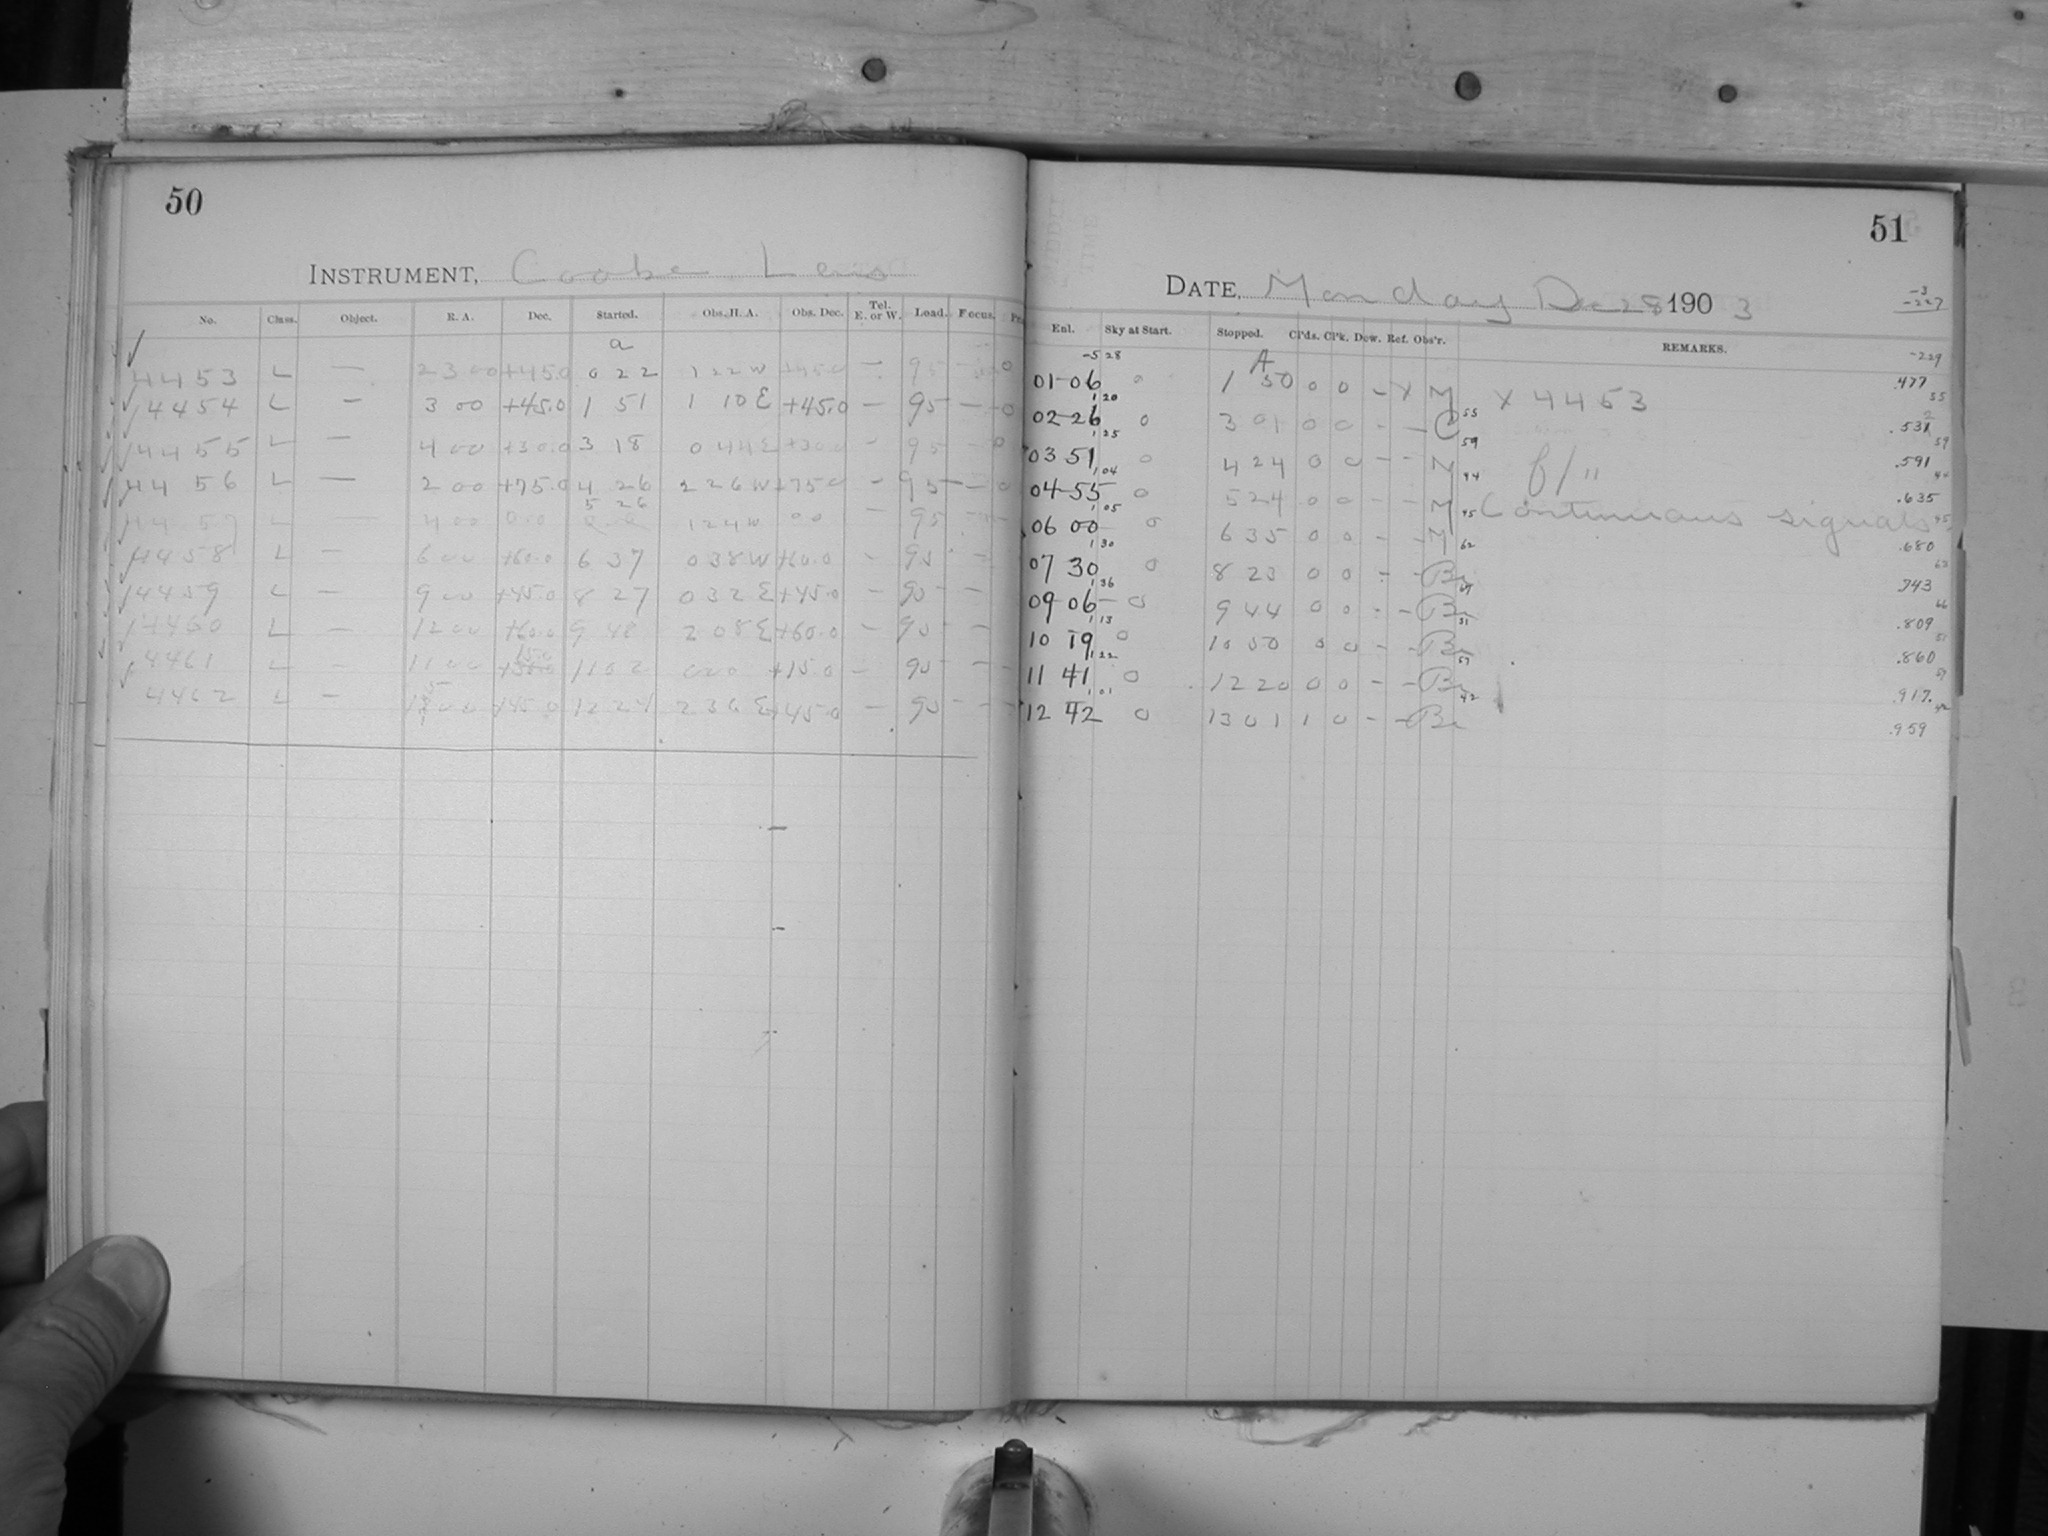 50
INSTRUMENT, Cooke Lens
No. Class. Object. R. A. Dec. Started. Obs. H. A. Obs. Dec. Tel. E. or W. Load. Focus.
a
4453 L — 23 00 +45.0 0 22 1 22 W +45.0 — 95 — 0
4454 L — 3 00 +45.0 1 51 1 10 E +45.0 — 95 — 0
4455 L — 4 00 +30.0 3 18 0 44 E +30.0 — 95 — 0
4456 L — 2 00 +75.0 4 26 2 26 W +75.0 — 95 — 0
4457 L — 4 00 0.0 5 26 1 24 W 0.0 — 95 — —
4458 L — 6 00 +60.0 6 37 0 38 W +60.0 — 95 — —
4459 L — 9 00 +45.0 8 27 0 32 E +45.0 — 90 — —
4460 L — 12 00 +60.0 9 48 2 08 E +60.0 — 90 — —
4461 L — 11 00 15.0 11 02 0 20 +15.0 — 90 — —
4462 L — +45.0 12 24 2 36 E +45.0 — 90 — —
51
DATE, Monday Dec 28 1903
-3
-227
Enl. Sky at Start. Stopped. Cl'ds. Cl'k. Dew. Ref. Obs'r. REMARKS.
-5 28 A -229
01-06 0 1 50 0 0 - X M X 4453 .477
1 20 55 55
02-26 0 3 01 0 0 - - C .532
1 25 59 59
03 51 0 4 24 0 0 - - M f/" .591
1 04 44 44
04-55 0 5 24 0 0 - - M Continuous signals .635
1 05 45 45
06 00 0 6 35 0 0 - - M .680
1 30 62 62
07 30 0 8 23 0 0 - - Br .743
1 36 66
09-06 0 9 44 0 0 - - Br .809
1 13 51 51
10 19 0 10 50 0 0 - - Br .860
1 22 57 57
11 41 0 12 20 0 0 - - Br .917
1 01 42 42
12 42 0 13 01 1 0 - - Br .959